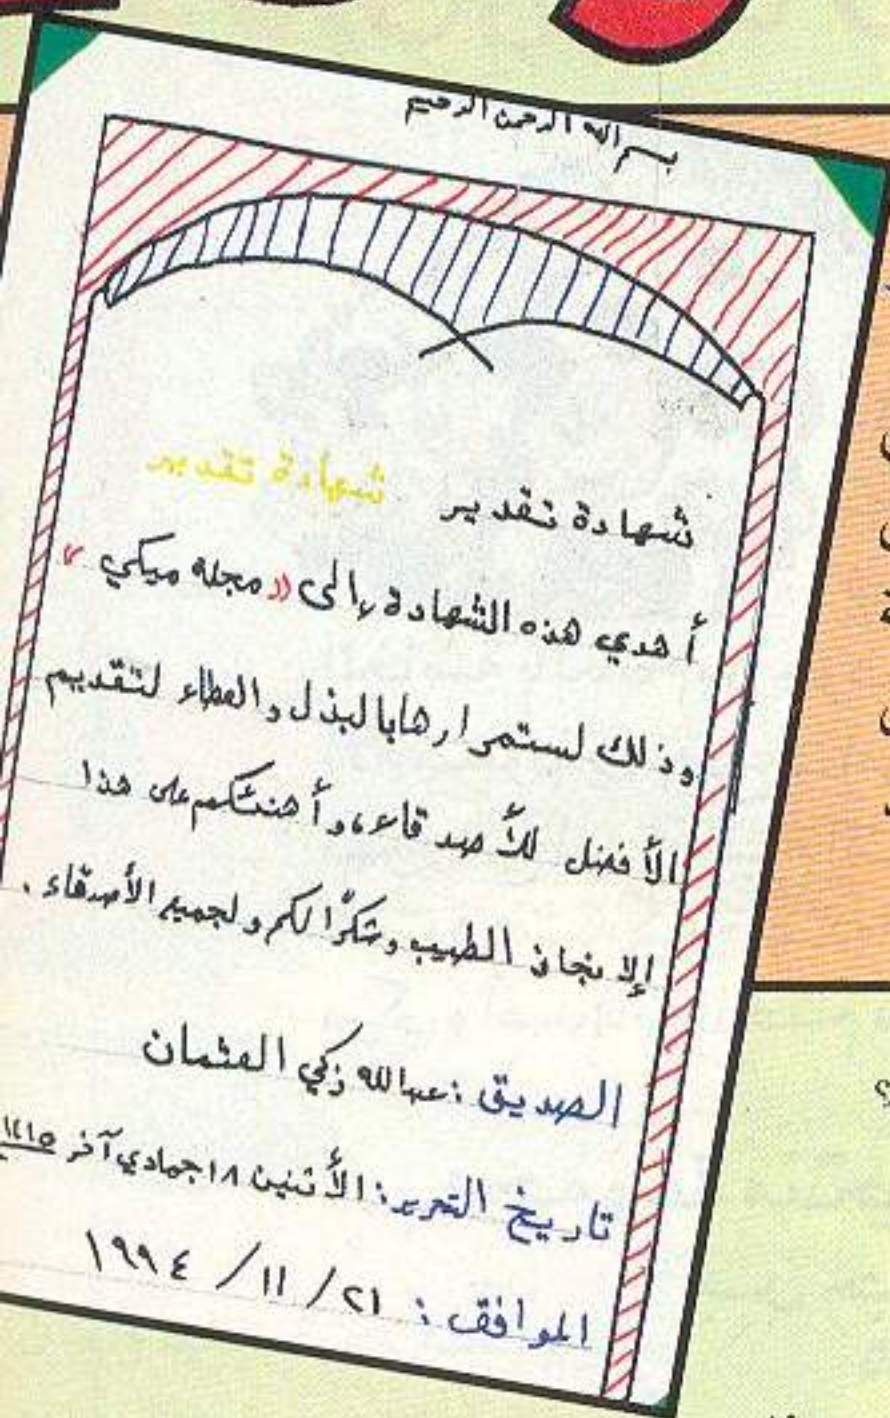 بسم الله الرحمن الرحيم
شهادة تقدير شهادة تقدير
أهدي هذه الشهادة إلى «مجله ميكي»
وذلك لستمرارها بالبذل والعطاء لتقديم
الأفضل للأصدقاء، وأهنئكم على هذا
الإنجاز الطيب وشكرًا لكم ولجميع الأصدقاء.
الصديق: عبدالله زكي العثمان
تاريخ التحرير: الأثنين ١٨ جمادي آخر ١٤١٥
الموافق: ٢١/ ١١/ ١٩٩٤